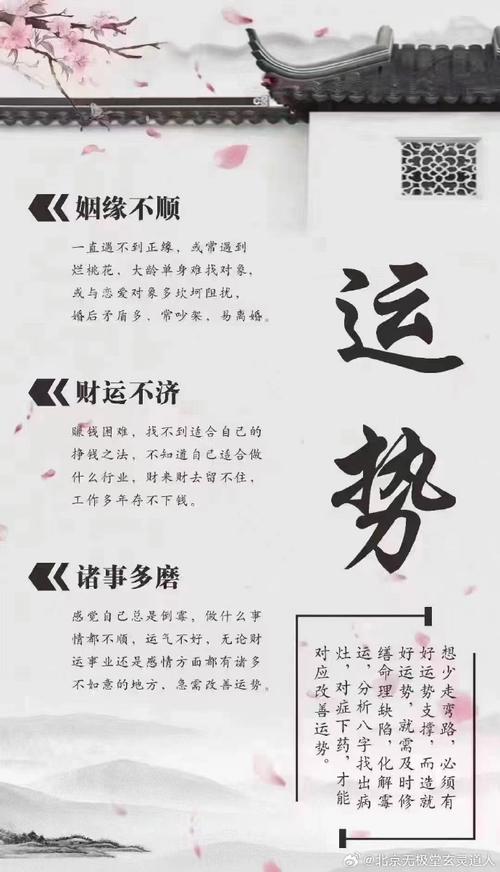 姻缘不顺
一直遇不到正缘，或常遇到
烂桃花、大龄单身难找对象，
或与恋爱对象多坎坷阻扰，
婚后矛盾多、常吵架，易离婚。
财运不济
赚钱困难，找不到适合自己的
挣钱之法，不知道自己适合做
什么行业，财来财去留不住，
工作多年存不下钱。
诸事多磨
感觉自己总是倒霉，做什么事
情都不顺，运气不好，无论财
运事业还是感情方面都有诸多
不如意的地方，急需改善运势。
运势
想少走弯路，必须有
好运势支撑，而造就
好运势，就需及时修
缮命理缺陷，化解霉
运，分析八字找出病
灶，对症下药，才能
对应改善运势。
@北京无极堂玄灵道人